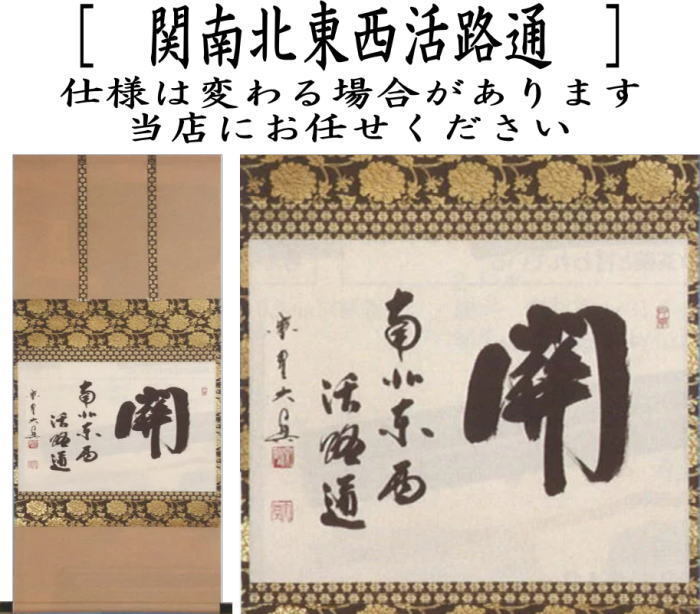 [ 関南北東西活路通 ]
仕様は変わる場合があります
当店にお任せください
関
南北東西
活路通
関
南北東西
活路通